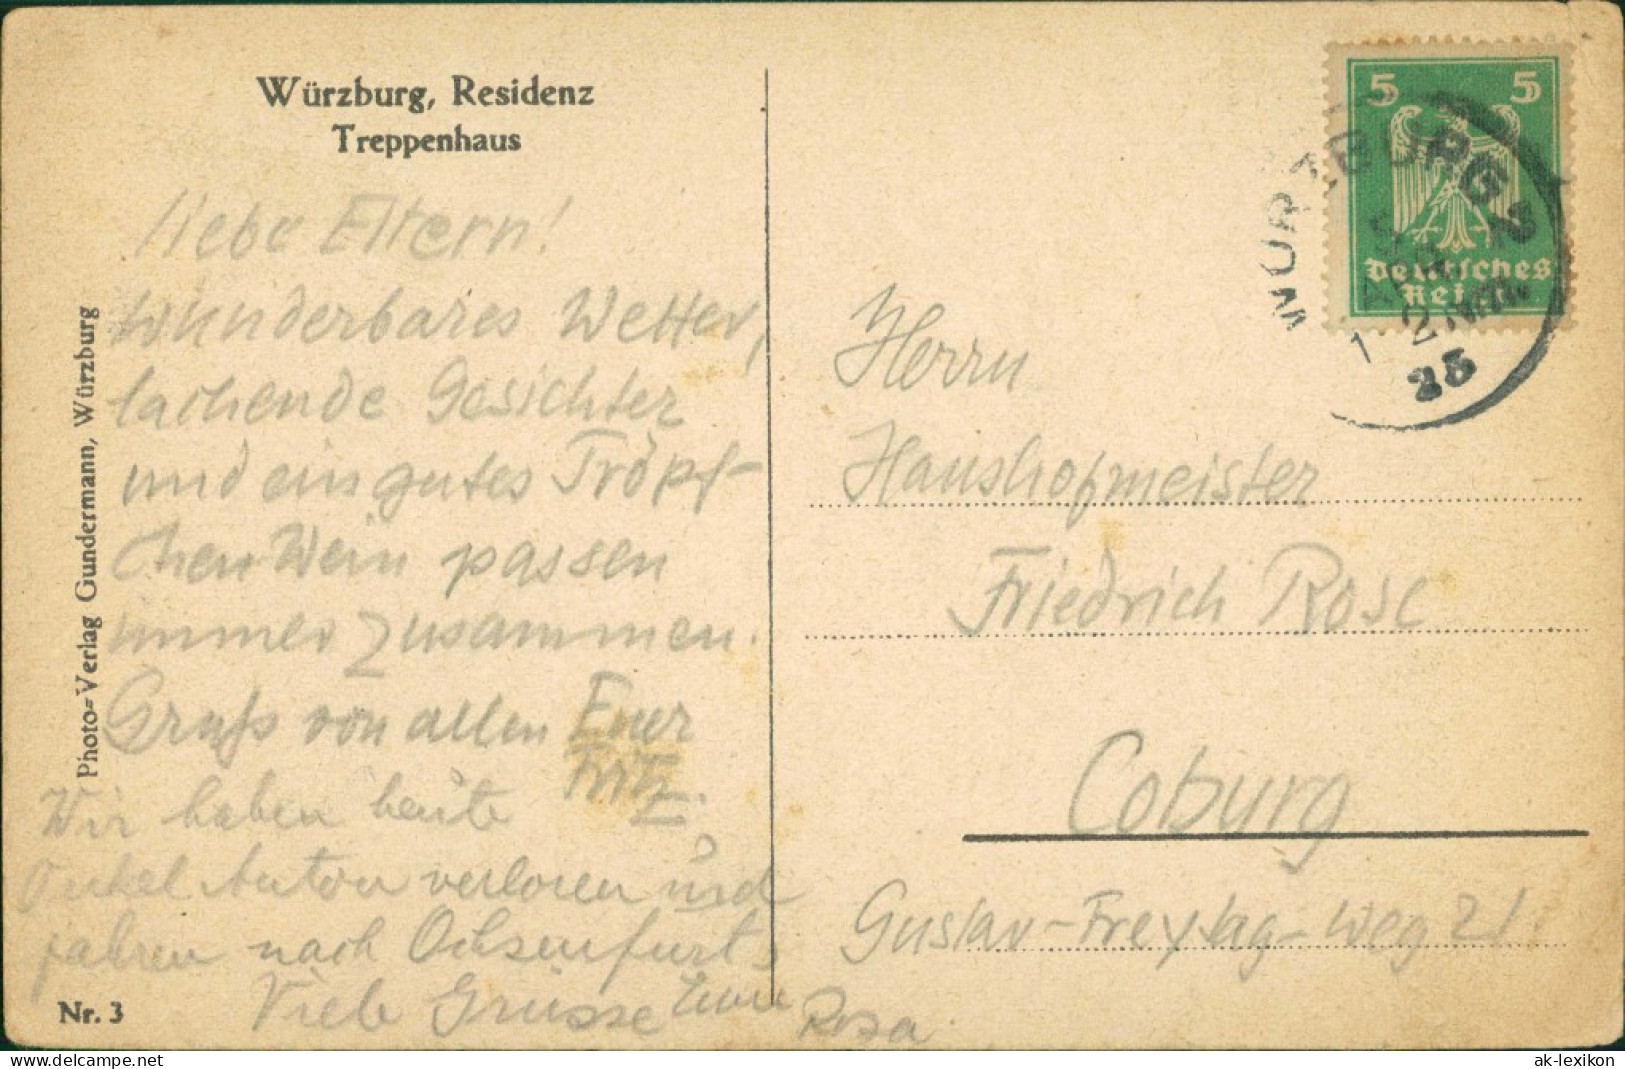 Würzburg, Residenz
Treppenhaus
liebe Eltern!
wunderbares Wetter,
lachende Gesichter
und ein gutes Tröpf-
chen Wein passen
immer zusammen.
Gruß von allen Euer
Fritz.
Wir haben heute
Onkel Anton verloren und
fahren nach Ochsenfurt
Viele Grüsse Eure Rosa
Photo-Verlag Gundermann, Würzburg
Nr. 3
5 5
Deutsches
Reich
WÜRZBURG 2
25
Herrn
Haushofmeister
Friedrich Rose
Coburg
Gustav-Freytag-Weg 21.
My-Postcard.com
ak-lexikon